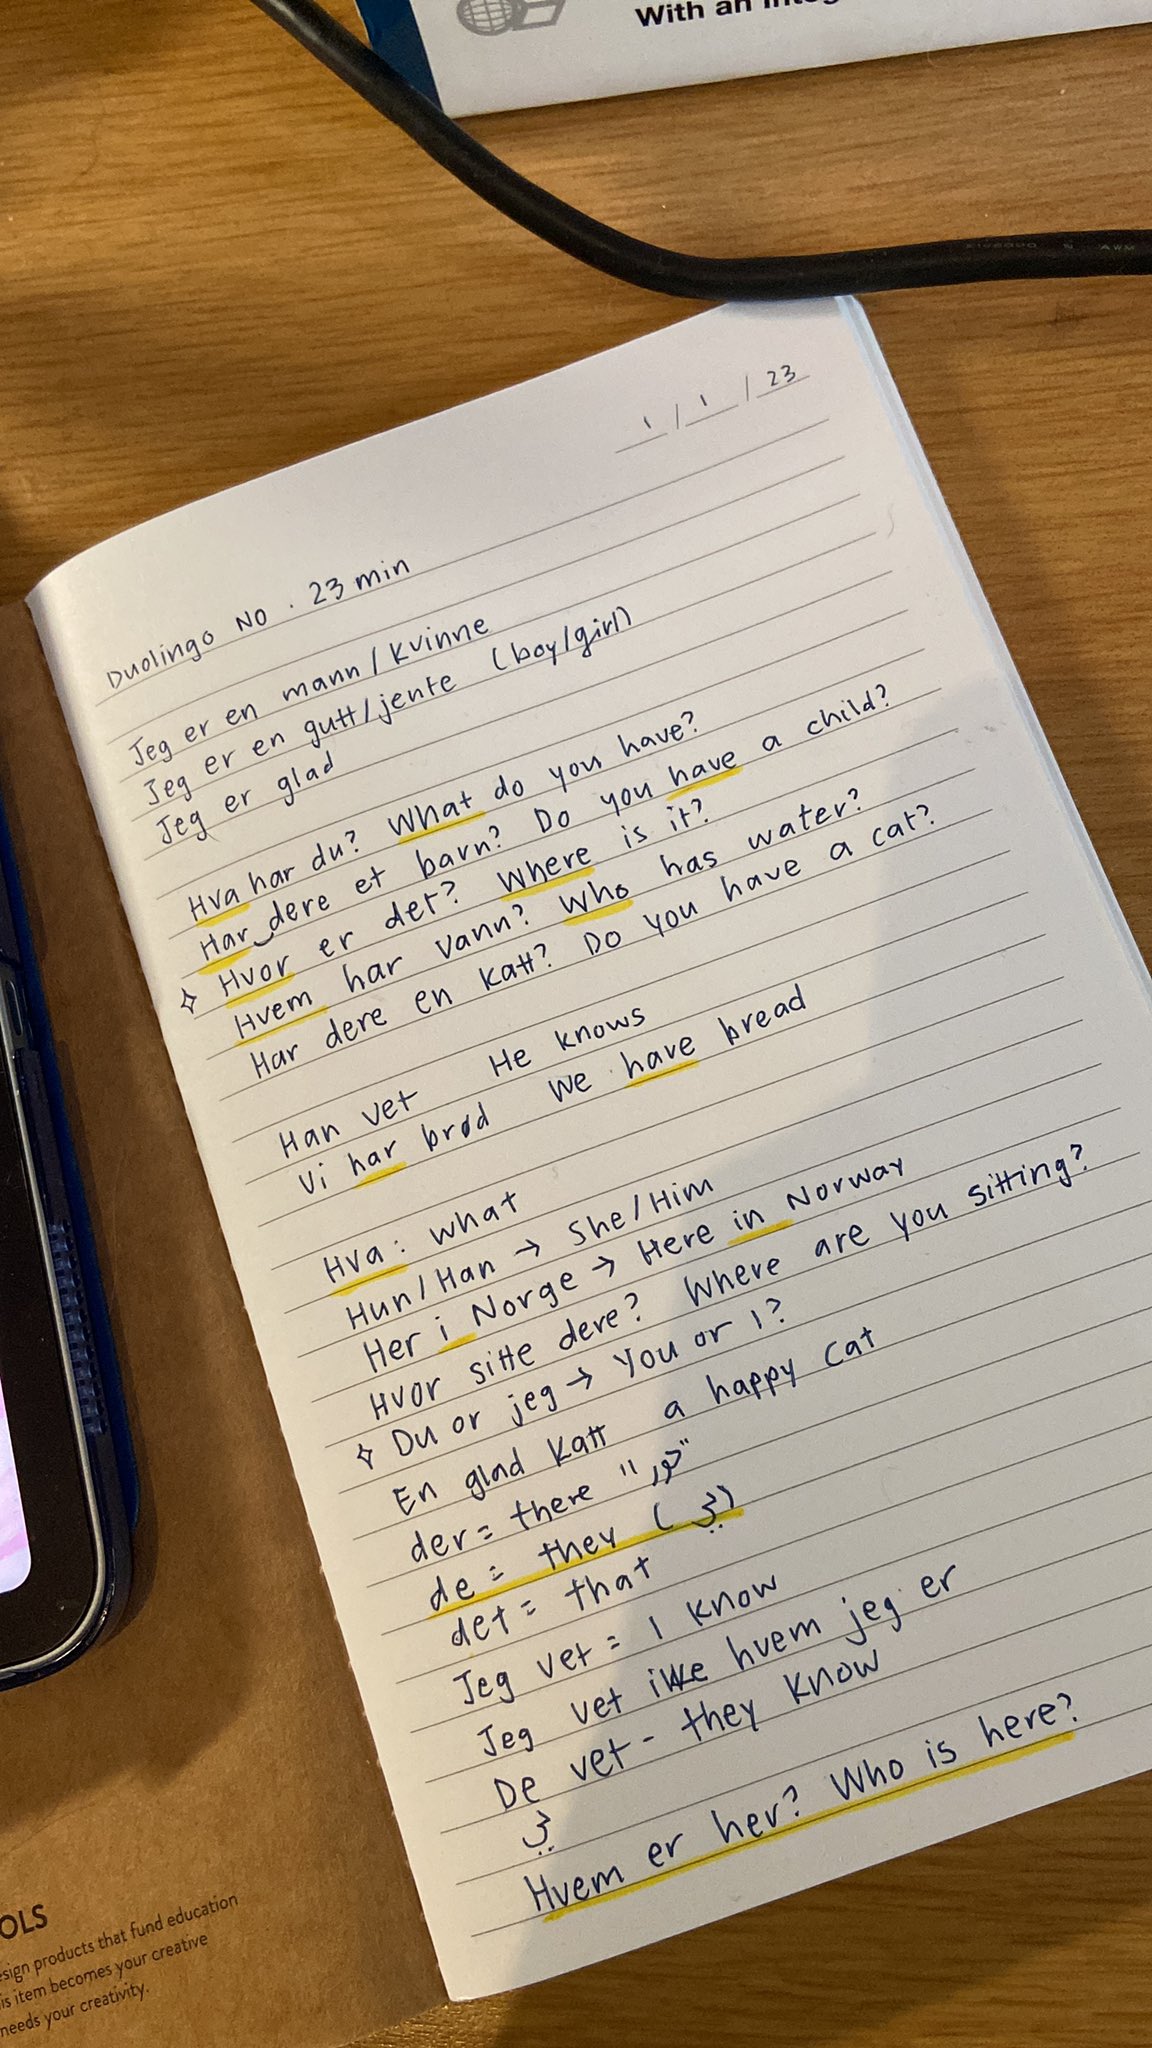 With an
1 / 1 / 23
Duolingo NO . 23 min
Jeg er en mann / kvinne
Jeg er en gutt/jente (boy/girl)
Jeg er glad
Hva har du? What do you have?
Har dere et barn? Do you have a child?
Hvor er det? Where is it?
Hvem har vann? Who has water?
Har dere en katt? Do you have a cat?
Han vet He knows
Vi har brød We have bread
Hva: what
Hun/Han → She/Him
Her i Norge → Here in Norway
Hvor sitte dere? Where are you sitting?
Du or jeg → You or I?
En glad katt a happy cat
der = there "دور"
de = they (دي)
det = that
Jeg vet = I know
Jeg vet ikke hvem jeg er
De vet - they know
دي
Hvem er her? Who is here?
OLS
sign products that fund education
is item becomes your creative
needs your creativity.